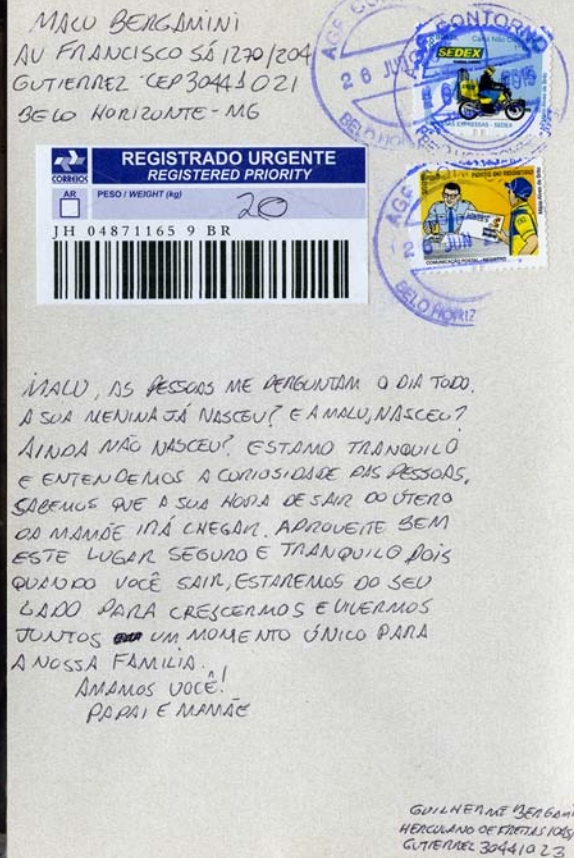 MALU BERGAMINI
AV FRANCISCO SÁ 1270/204
GUTIERREZ CEP 30441021
BELO HORIZONTE - MG
CONTORNO
SEDEX
26 JUN 2015
BELO HORIZONTE
CORREIOS
REGISTRADO URGENTE
REGISTERED PRIORITY
AR
PESO / WEIGHT (kg)
20
JH 04871165 9 BR
AGF
26 JUN
COMUNICAÇÃO POSTAL - REGISTRO
BELO HORIZ
MALU, AS PESSOAS ME PERGUNTAM O DIA TODO.
A SUA MENINA JÁ NASCEU? E A MALU, NASCEU?
AINDA NÃO NASCEU? ESTAMO TRANQUILO
E ENTENDEMOS A CURIOSIDADE DAS PESSOAS.
SABEMOS QUE A SUA HORA DE SAIR DO ÚTERO
DA MAMÃE IRÁ CHEGAR. APROVEITE BEM
ESTE LUGAR SEGURO E TRANQUILO POIS
QUANDO VOCÊ SAIR, ESTAREMOS DO SEU
LADO PARA CRESCERMOS E VIVERMOS
JUNTOS UM MOMENTO ÚNICO PARA
A NOSSA FAMILIA.
AMAMOS VOCÊ!
PAPAI E MAMÃE
GUILHERME BERGAMI
HERCULANO DE FREITAS
GUTIERREZ 30441023